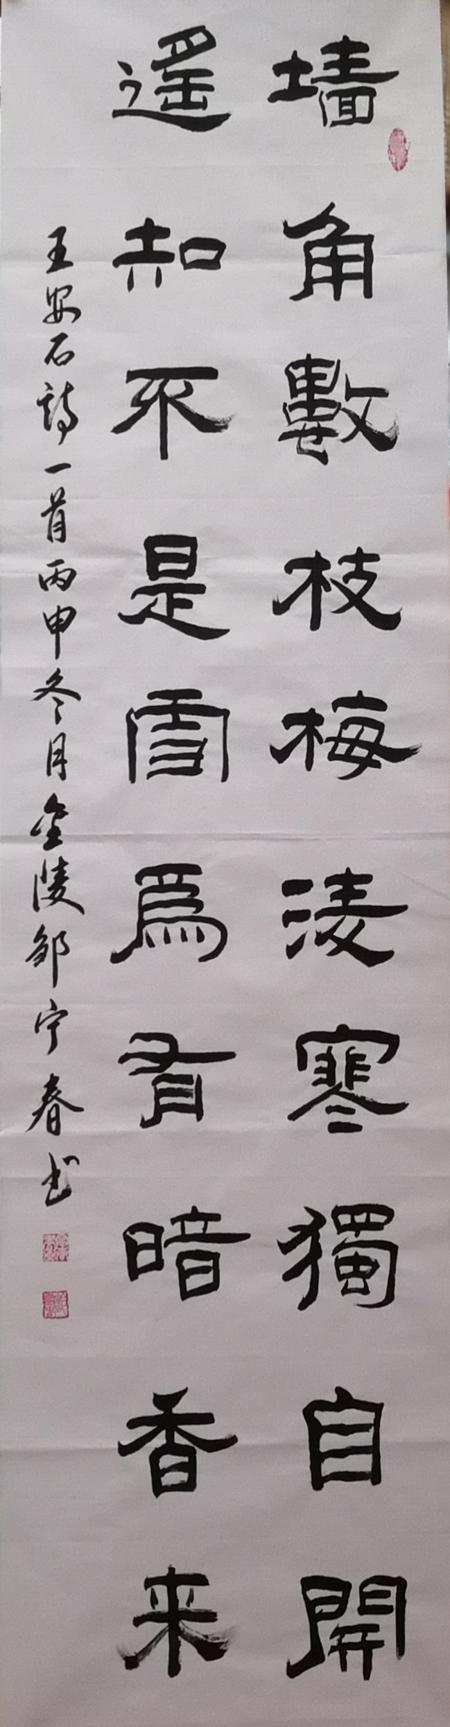 墙角數枝梅凌寒獨自開
遥知不是雪爲有暗香来
王安石詩一首丙申冬月金陵邹宁春书